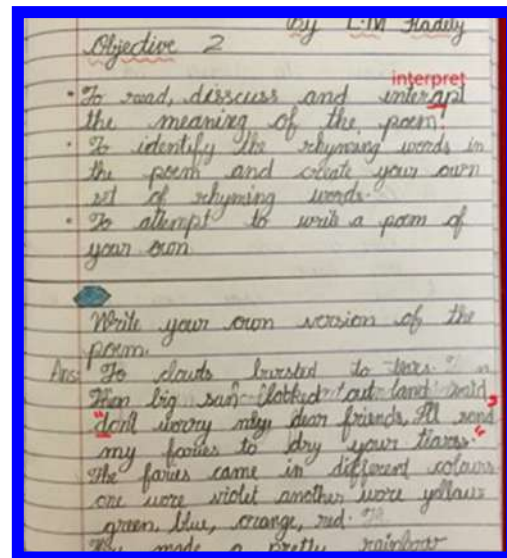 By L.M Hadely
Objective 2
interpret
• To read, disscuss and interapt
the meaning of the poem!
• To identify the rhyming words in
the poem and create your own
set of rhyming words.
• To attempt to write a poem of
your own.
Write your own version of the
poem.
Ans: To clouts bursted to tears.
Then big sun clobked out and said,
"don't worry my dear friends, I'll send
my faries to dry your tiaras."
The faries came in different colours
one wore violet another wore yollaur
green, blue, orange, red.
They made a pretty rainbow